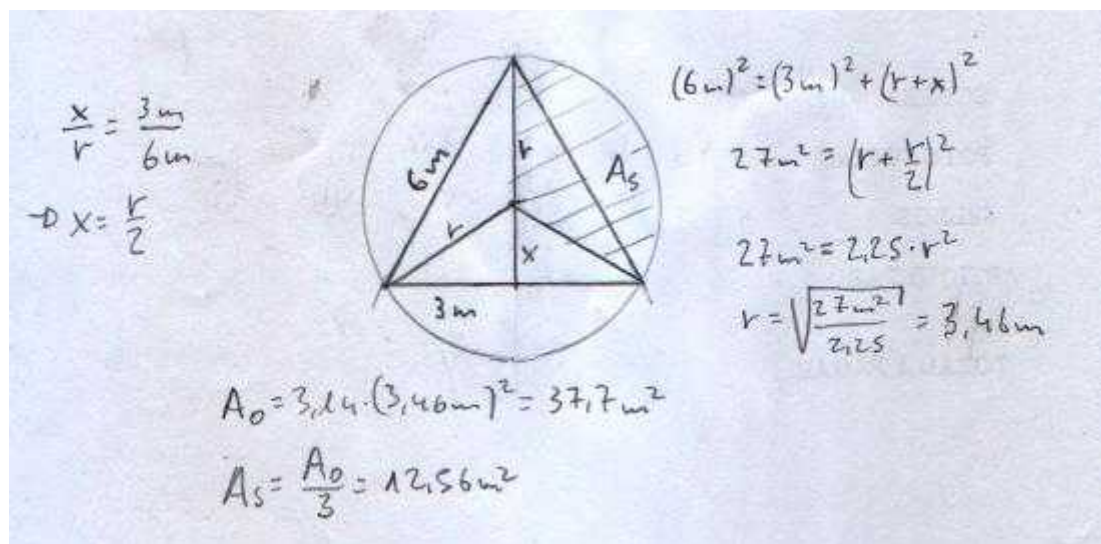 x/r = 3m/6m
→ x = r/2
6m
r
r
x
3m
A_S
(6m)² = (3m)² + (r+x)²
27m² = (r + r/2)²
27m² = 2,25 · r²
r = √(27m²/2,25) = 3,46m
A_O = 3,14 · (3,46m)² = 37,7m²
A_S = A_O/3 = 12,56m²